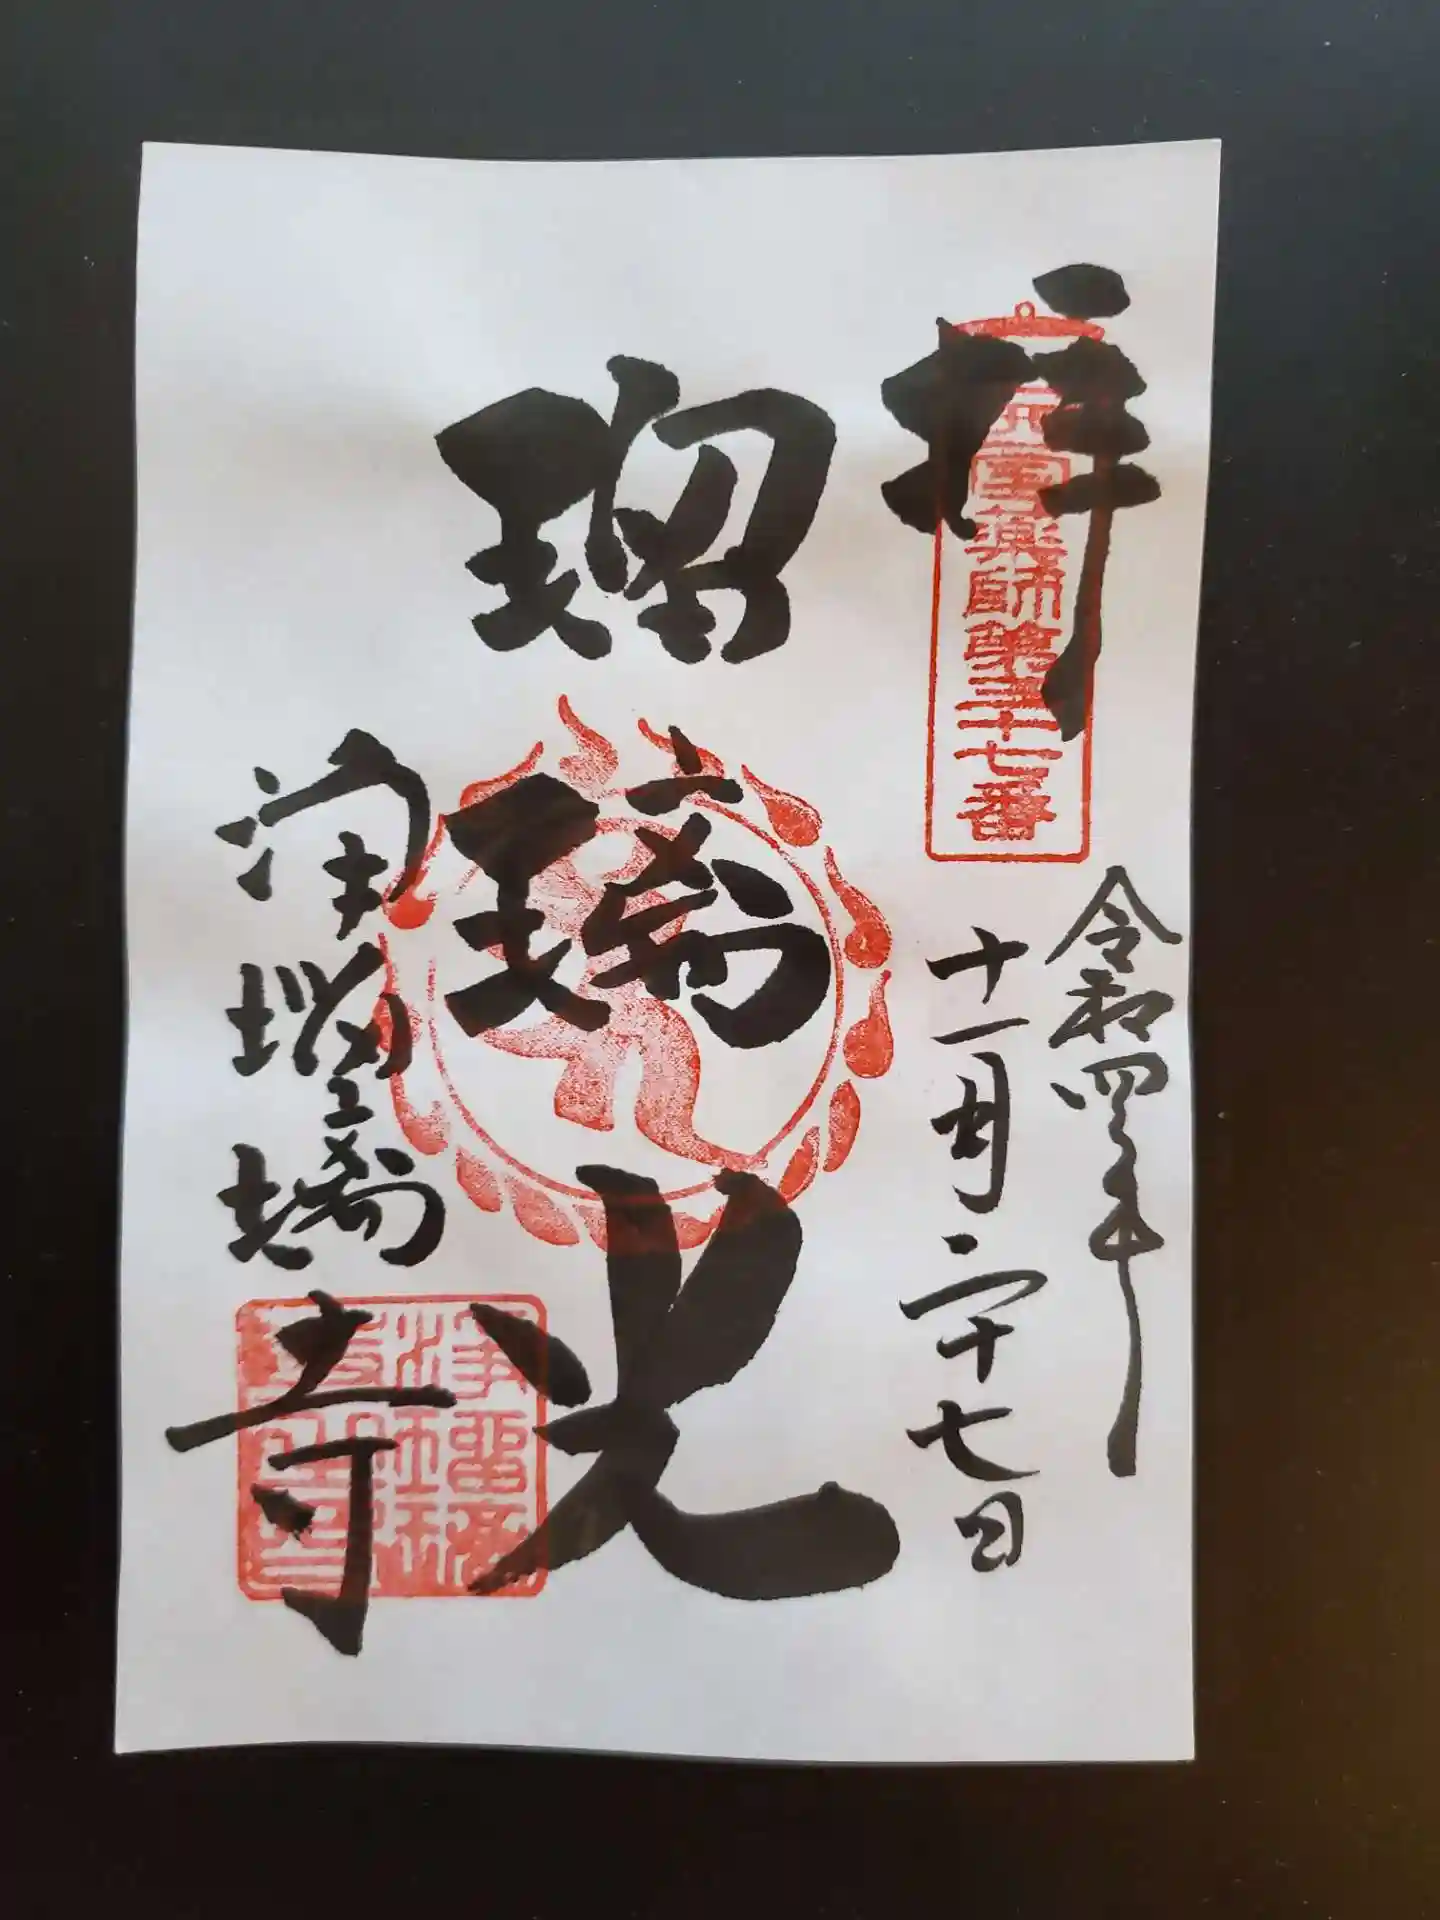 拝
薬師第三十七番
令和四年
十一月二十七日
瑠璃光
浄瑠璃寺